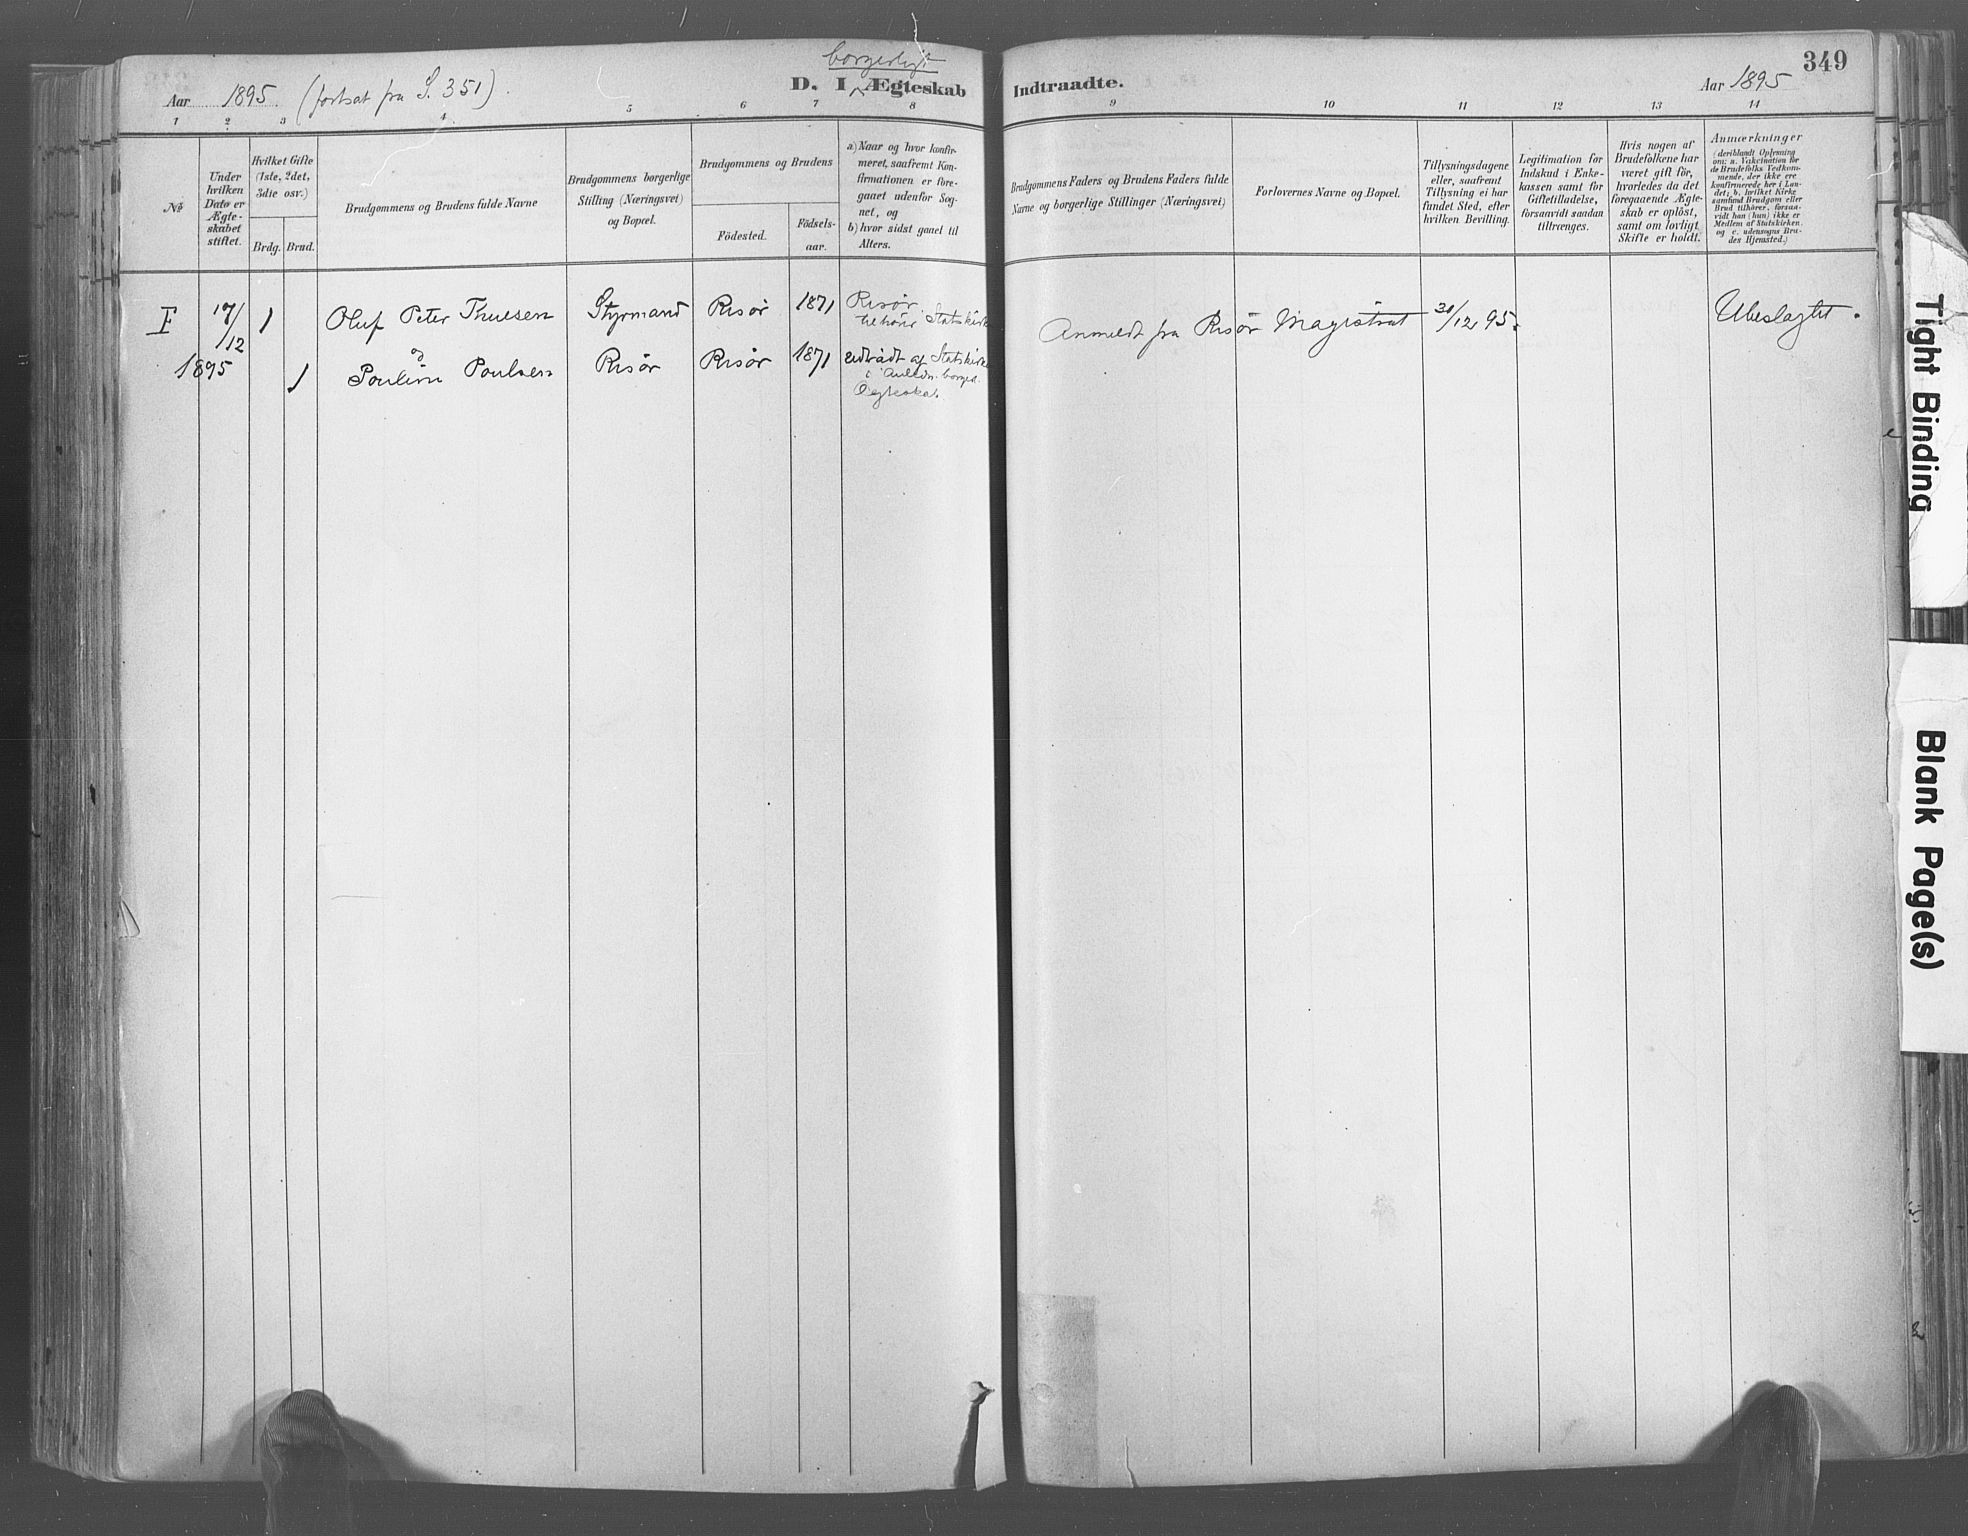 349
borgerligt
Aar 1895 (fortsat fra S. 351).
D. I Ægteskab Indtraadte.
Aar 1895
1 2 3 4 5 6 7 8 9 10 11 12 13 14
No
Under
hvilken
Dato er
Ægte-
skabet
stiftet.
Hvilket Gifte
(1ste, 2det,
3die osv.)
Brdg. Brud.
Brudgommens og Brudens fulde Navne
Brudgommens borgerlige
Stilling (Næringsvei)
og Bopæl.
Brudgommens og Brudens
Födested.
Födsels-
aar.
a) Naar og hvor konfir-
meret, saafremt Kon-
firmationen er fore-
gaaet udenfor Sog-
net, og
b) hvor sidst gaaet til
Alters.
Brudgommens Faders og Brudens Faders fulde
Navne og borgerlige Stillinger (Næringsvei)
Forlovernes Navne og Bopæl.
Tillysningsdagene
eller, saafremt
Tillysning ei har
fundet Sted, efter
hvilken Bevilling.
Legitimation for
Indskud i Enke-
kassen samt for
Giftetilladelse,
forsaavidt saadan
tiltrænges.
Hvis nogen af
Brudefolkene har
været gift för,
hvorledes da det
foregaaende Ægte-
skab er oplöst,
samt om lovligt
Skifte er holdt.
Anmærkninger
(deriblandt Oplysning
om: a. Vakcination for
de Brudefolks Vedkom-
mende, der ikke ere
konfirmerede her i Lan-
det; b. hvilket Kirke
samfund Brudgom eller
Brud tilhörer, forsaa-
vidt han (hun) ikke er
Medlem af Statskirken,
og c. udensogns Bru-
des Hjemsted.)
F 17/12 1 Oluf Peter Thulsen Styrmand Risør 1871 Risør
tilhører Statskirk
Anmeldt fra Risør Magistrat 31/12 95. Ubeslagtet.
og
1895 1 Pouline Poulsen Risør Risør 1871 Udtrådt af Statskirke
i Anledn. borgerl.
Ægteskab.
Tight Binding
Blank Page(s)